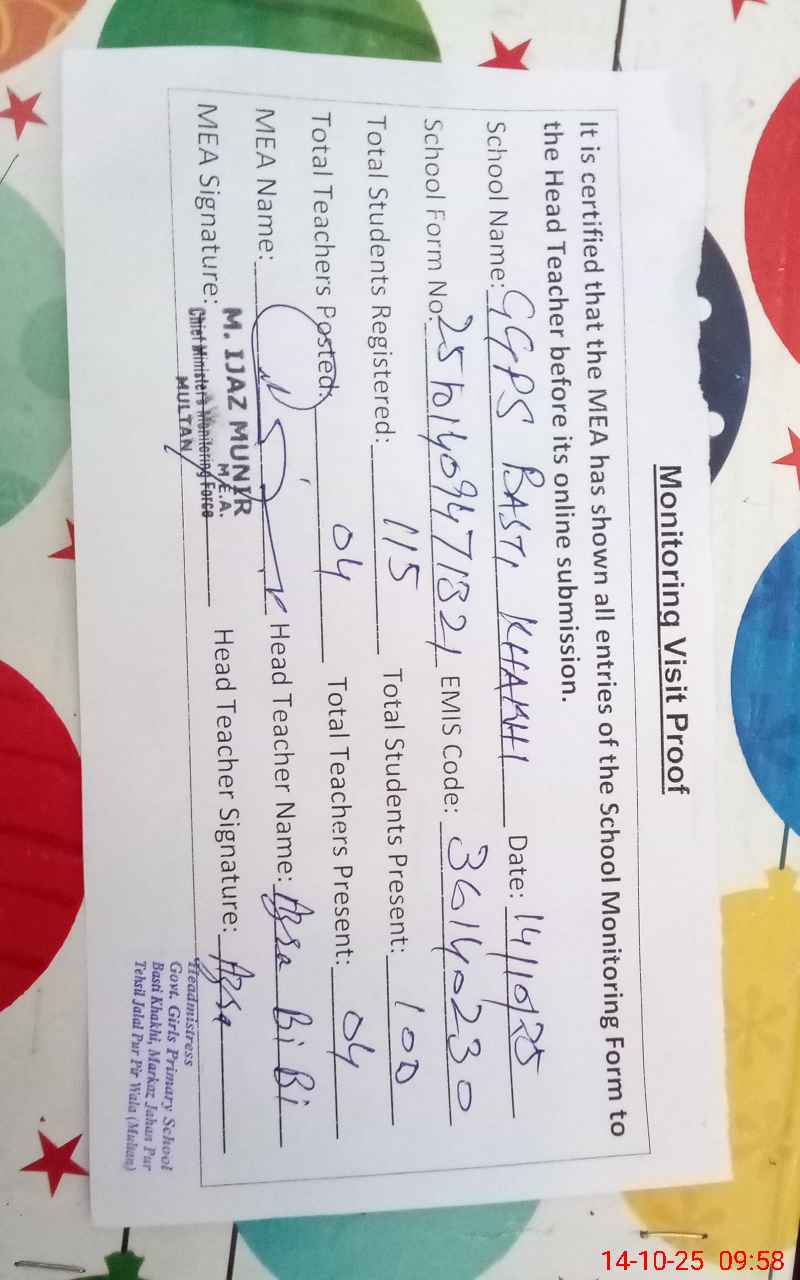 Monitoring Visit Proof
It is certified that the MEA has shown all entries of the School Monitoring Form to
the Head Teacher before its online submission.
School Name: GGPS BASTI KHAKHI Date: 14/10/25
School Form No: 25101409471821 EMIS Code: 36140230
Total Students Registered: 115 Total Students Present: 100
Total Teachers Posted: 04 Total Teachers Present: 04
MEA Name: Head Teacher Name: Azra Bi Bi
MEA Signature: Head Teacher Signature: Azra
M. IJAZ MUNIR
M.E.A.
Chief Minister's Monitoring Force
MULTAN
Headmistress
Govt. Girls Primary School
Basti Khakhi, Markaz Jahan Pur
Tehsil Jalal Pur Pir Wala (Multan)
14-10-25 09:58